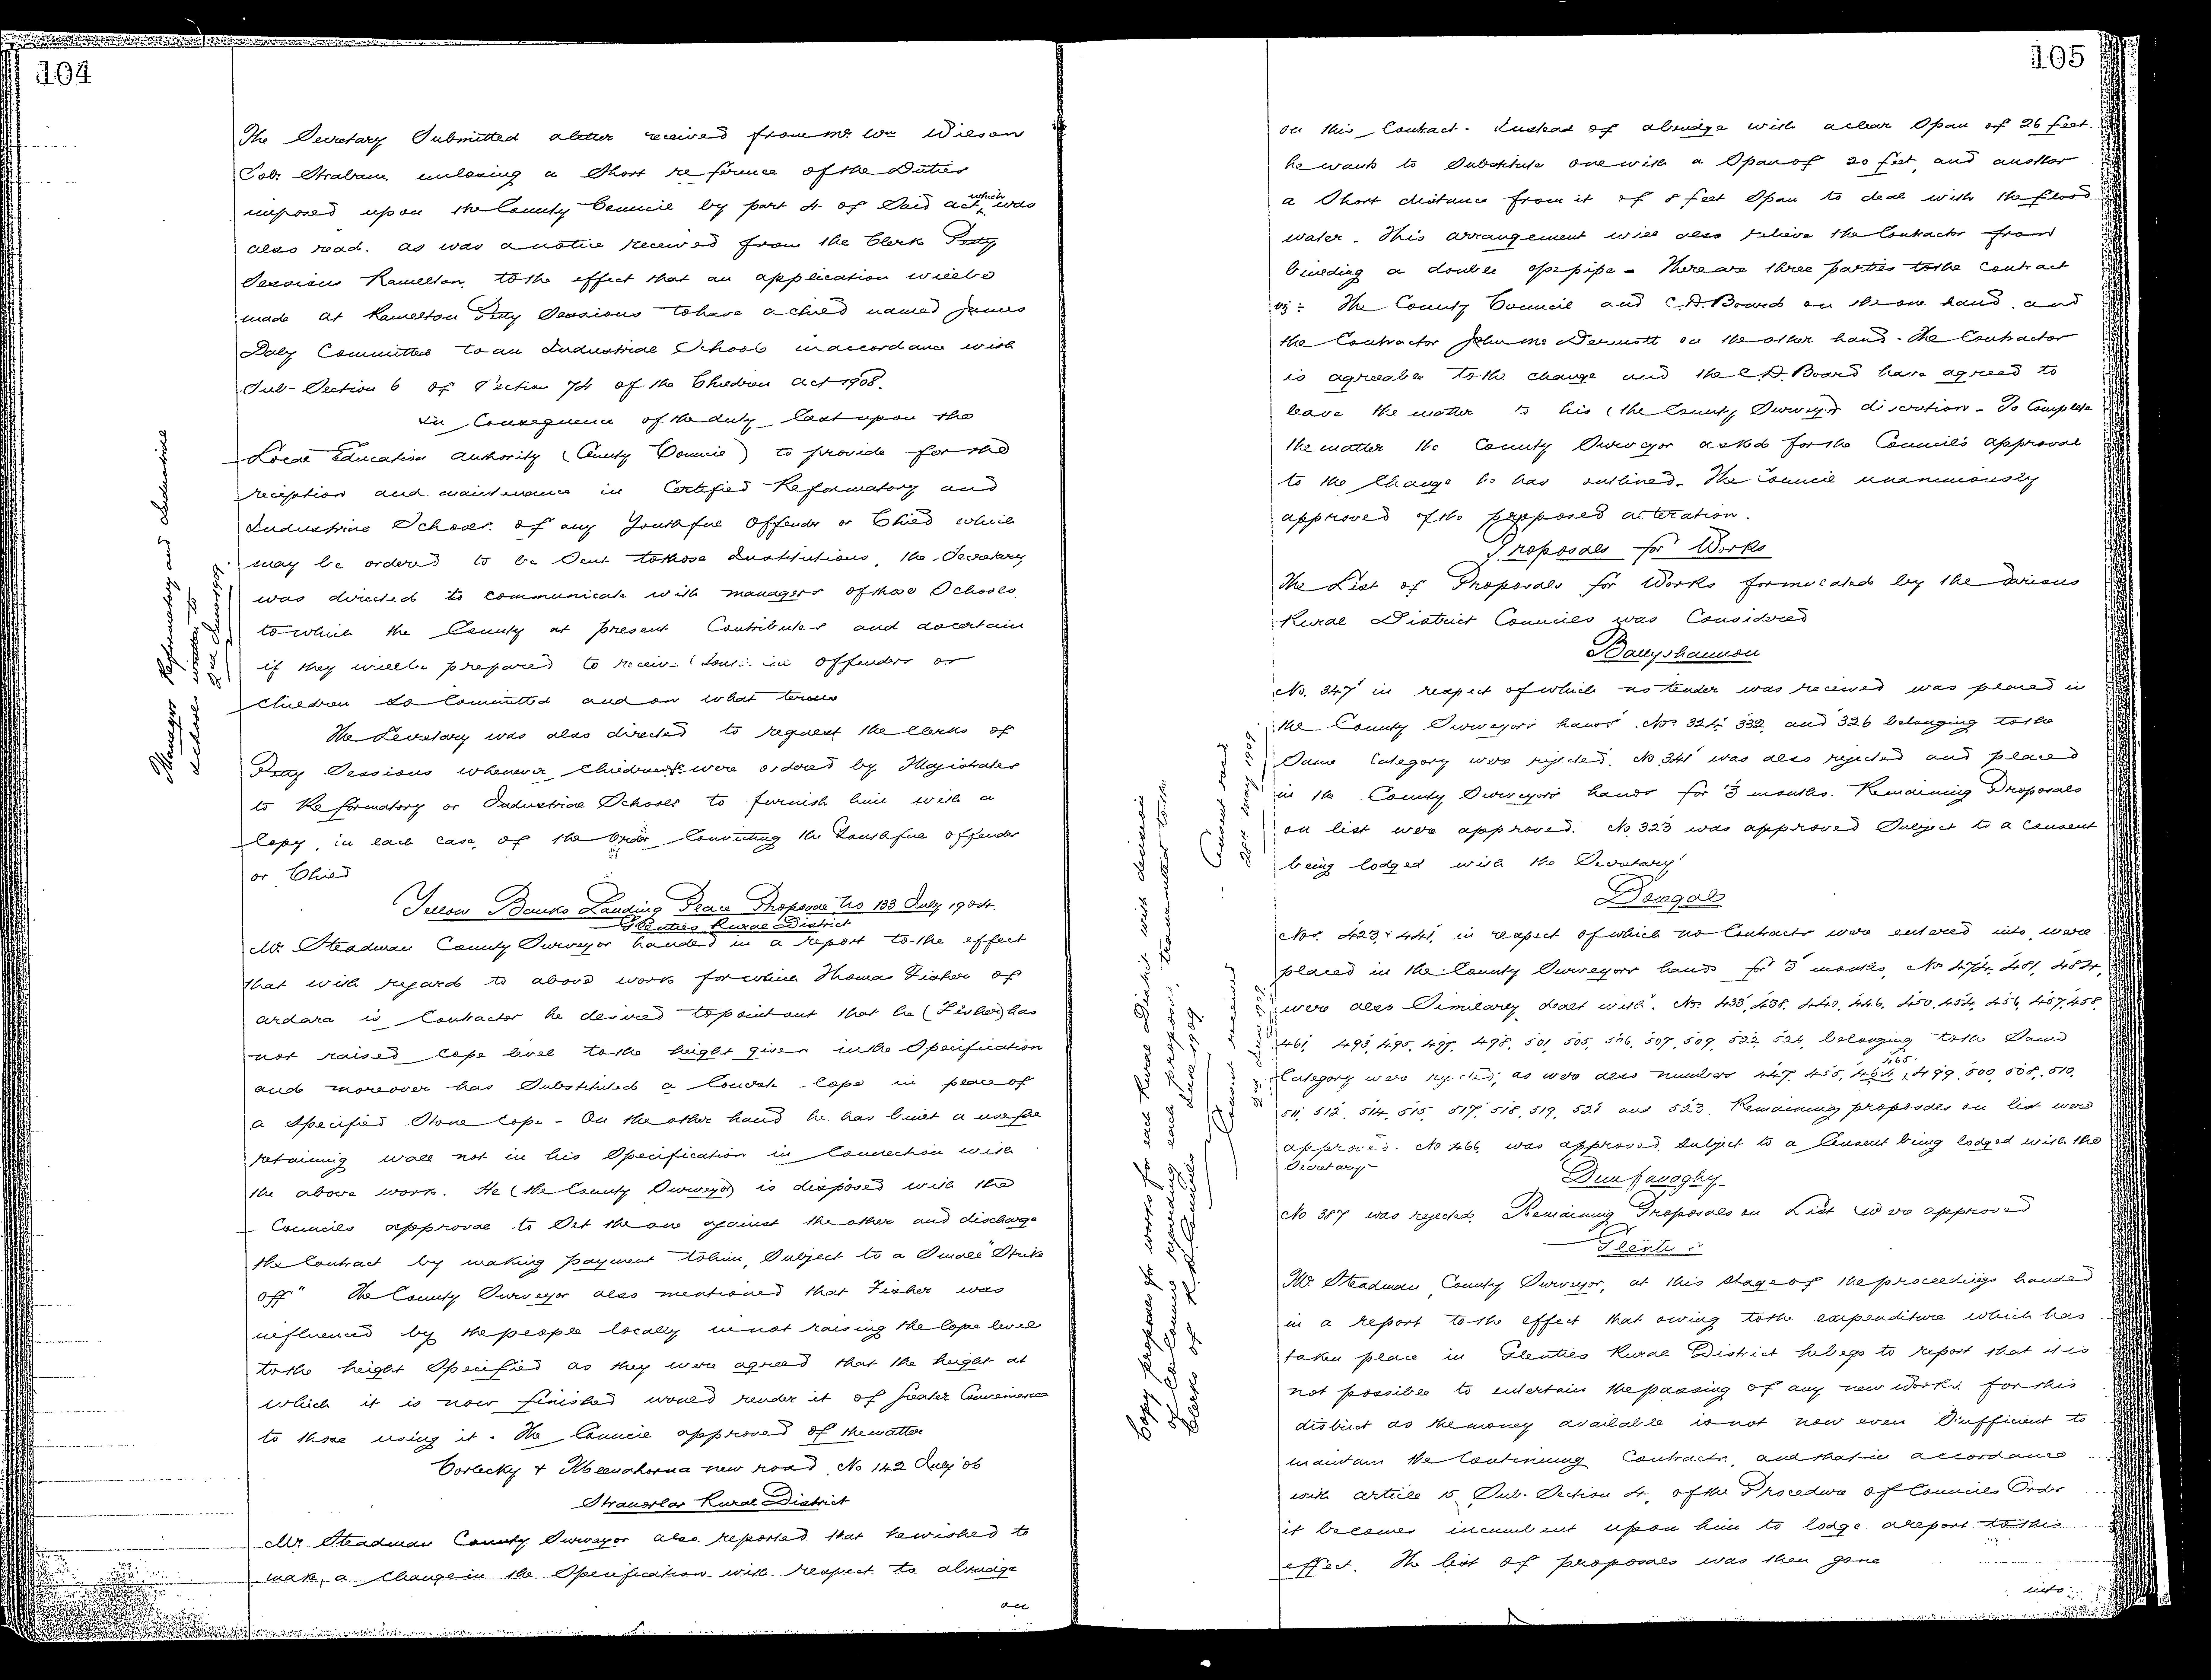 104
The Secretary Submitted a letter received from Mr Wm Wilson
Solr Strabane enclosing a Short reference of the Duties
imposed upon the County Council by part 4 of Said act which was
also read. as was a notice received from the Clerk Petty
Sessions Ramelton, to the effect that an application will be
made at Ramelton Petty Sessions to have a child named James
Daly Committed to an Industrial School in accordance with
Sub-Section 6 of Section 74 of the Children Act 1908.
In Consequence of the duty Cast upon the
Local Education Authority (County Council) to provide for the
reception and maintenance in Certified Reformatory and
Industrial Schools of any Youthful Offender or Child which
may be ordered to be Sent to those Institutions, the Secretary
was directed to communicate with managers of those Schools
to which the County at present Contributes and ascertain
if they will be prepared to receive offenders or
Children so Committed and on what terms
The Secretary was also directed to request the Clerks of
Petty Sessions whenever Children were ordered by Magistrates
to Reformatory or Industrial Schools to furnish him with a
Copy, in each case, of the Order Convicting the Youthful offender
or Child
Managers Reformatory and Industrial
Schools written to
2nd June 1909
Yellow Banks Landing Place Proposal No 133 July 1904.
Glenties Rural District
Mr Steadman County Surveyor handed in a report to the effect
that with regard to above work for which Thomas Fisher of
Ardara is Contractor he desired to point out that he (Fisher) has
not raised Cope level to the height given in the Specification
and moreover has Substituted a Concrete Cope in place of
a Specified Stone Cope - On the other hand he has built a useful
retaining wall not in his Specification in Connection with
the above work. He (the County Surveyor) is disposed with the
Councils approval to Set the one against the other and discharge
the Contract by making payment to him, Subject to a Small "Strike
off" The County Surveyor also mentioned that Fisher was
influenced by the people locally in not raising the Cope level
to the height Specified as they were agreed that the height at
which it is now finished would render it of greater Convenience
to those using it. The Council approved of the matter
Corlecky & new road No 142 July '06
Stranorlar Rural District
Mr. Steadman County Surveyor also reported that he wished to
make a Change in the Specification with respect to a bridge
on
105
on this Contract. Instead of a bridge with a clear Span of 26 feet
he wants to Substitute one with a Span of 20 feet, and another
a Short distance from it of 8 feet Span to deal with the flood
water. This arrangement will also relieve the Contractor from
building a double pipe - There are three parties to the Contract
viz: The County Council and C.D. Board on the one hand, and
the Contractor John Mc Dermott on the other hand. The Contractor
is agreeable to the change and the C.D. Board have agreed to
leave the matter to his (the County Surveyor) discretion - To Complete
the matter the County Surveyor asked for the Council's approval
to the Change he has outlined. The Council unanimously
approved of the proposed alteration.
Proposals for Works
The List of Proposals for Works formulated by the Various
Rural District Councils was Considered
Ballyshannon
No. 347 in respect of which no tender was received was placed in
the County Surveyors hands. Nos 324, 332 and 326 belonging to the
Same Category were rejected. No 341 was also rejected and placed
in the County Surveyors hands for 3 months. Remaining Proposals
on list were approved. No 323 was approved Subject to a Consent
being lodged with the Secretary
Consent recd
20th May 1909
Donegal
Nos. 423, & 441, in respect of which no Contracts were entered into, were
placed in the County Surveyors hands for 3 months, Nos 474, 481, 484,
were also Similarly dealt with. Nos 433, 438, 440, 446, 450, 454, 456, 457, 458,
461, 493, 495, 497, 498, 501, 505, 506, 507, 509, 522, 524, belonging to the Same
Category were rejected; as were also numbers 447, 455, 464, 465, 499, 500, 508, 510,
511, 512, 514, 515, 517, 518, 519, 521 and 523. Remaining proposals on list were
approved. No 466 was approved Subject to a Consent being lodged with the
Secretary
Consent received
2nd June 1909
Copy proposals for works for each Rural District with decision
of Co Council regarding each proposal, transmitted to the
Clerks of R. D. Councils June 1909
Dunfanaghy
No 387 was rejected. Remaining Proposals on List were approved
Glenties
Mr. Steadman, County Surveyor, at this stage of the proceedings handed
in a report to the effect that owing to the expenditure which has
taken place in Glenties Rural District he begs to report that it is
not possible to entertain the passing of any new works for this
district as the money available is not now even Sufficient to
maintain the Continuing Contracts, and that in accordance
with article 15 Sub-Section 4, of the Procedure of Councils Order
it becomes incumbent upon him to lodge a report to this
effect. The list of proposals was then gone
into